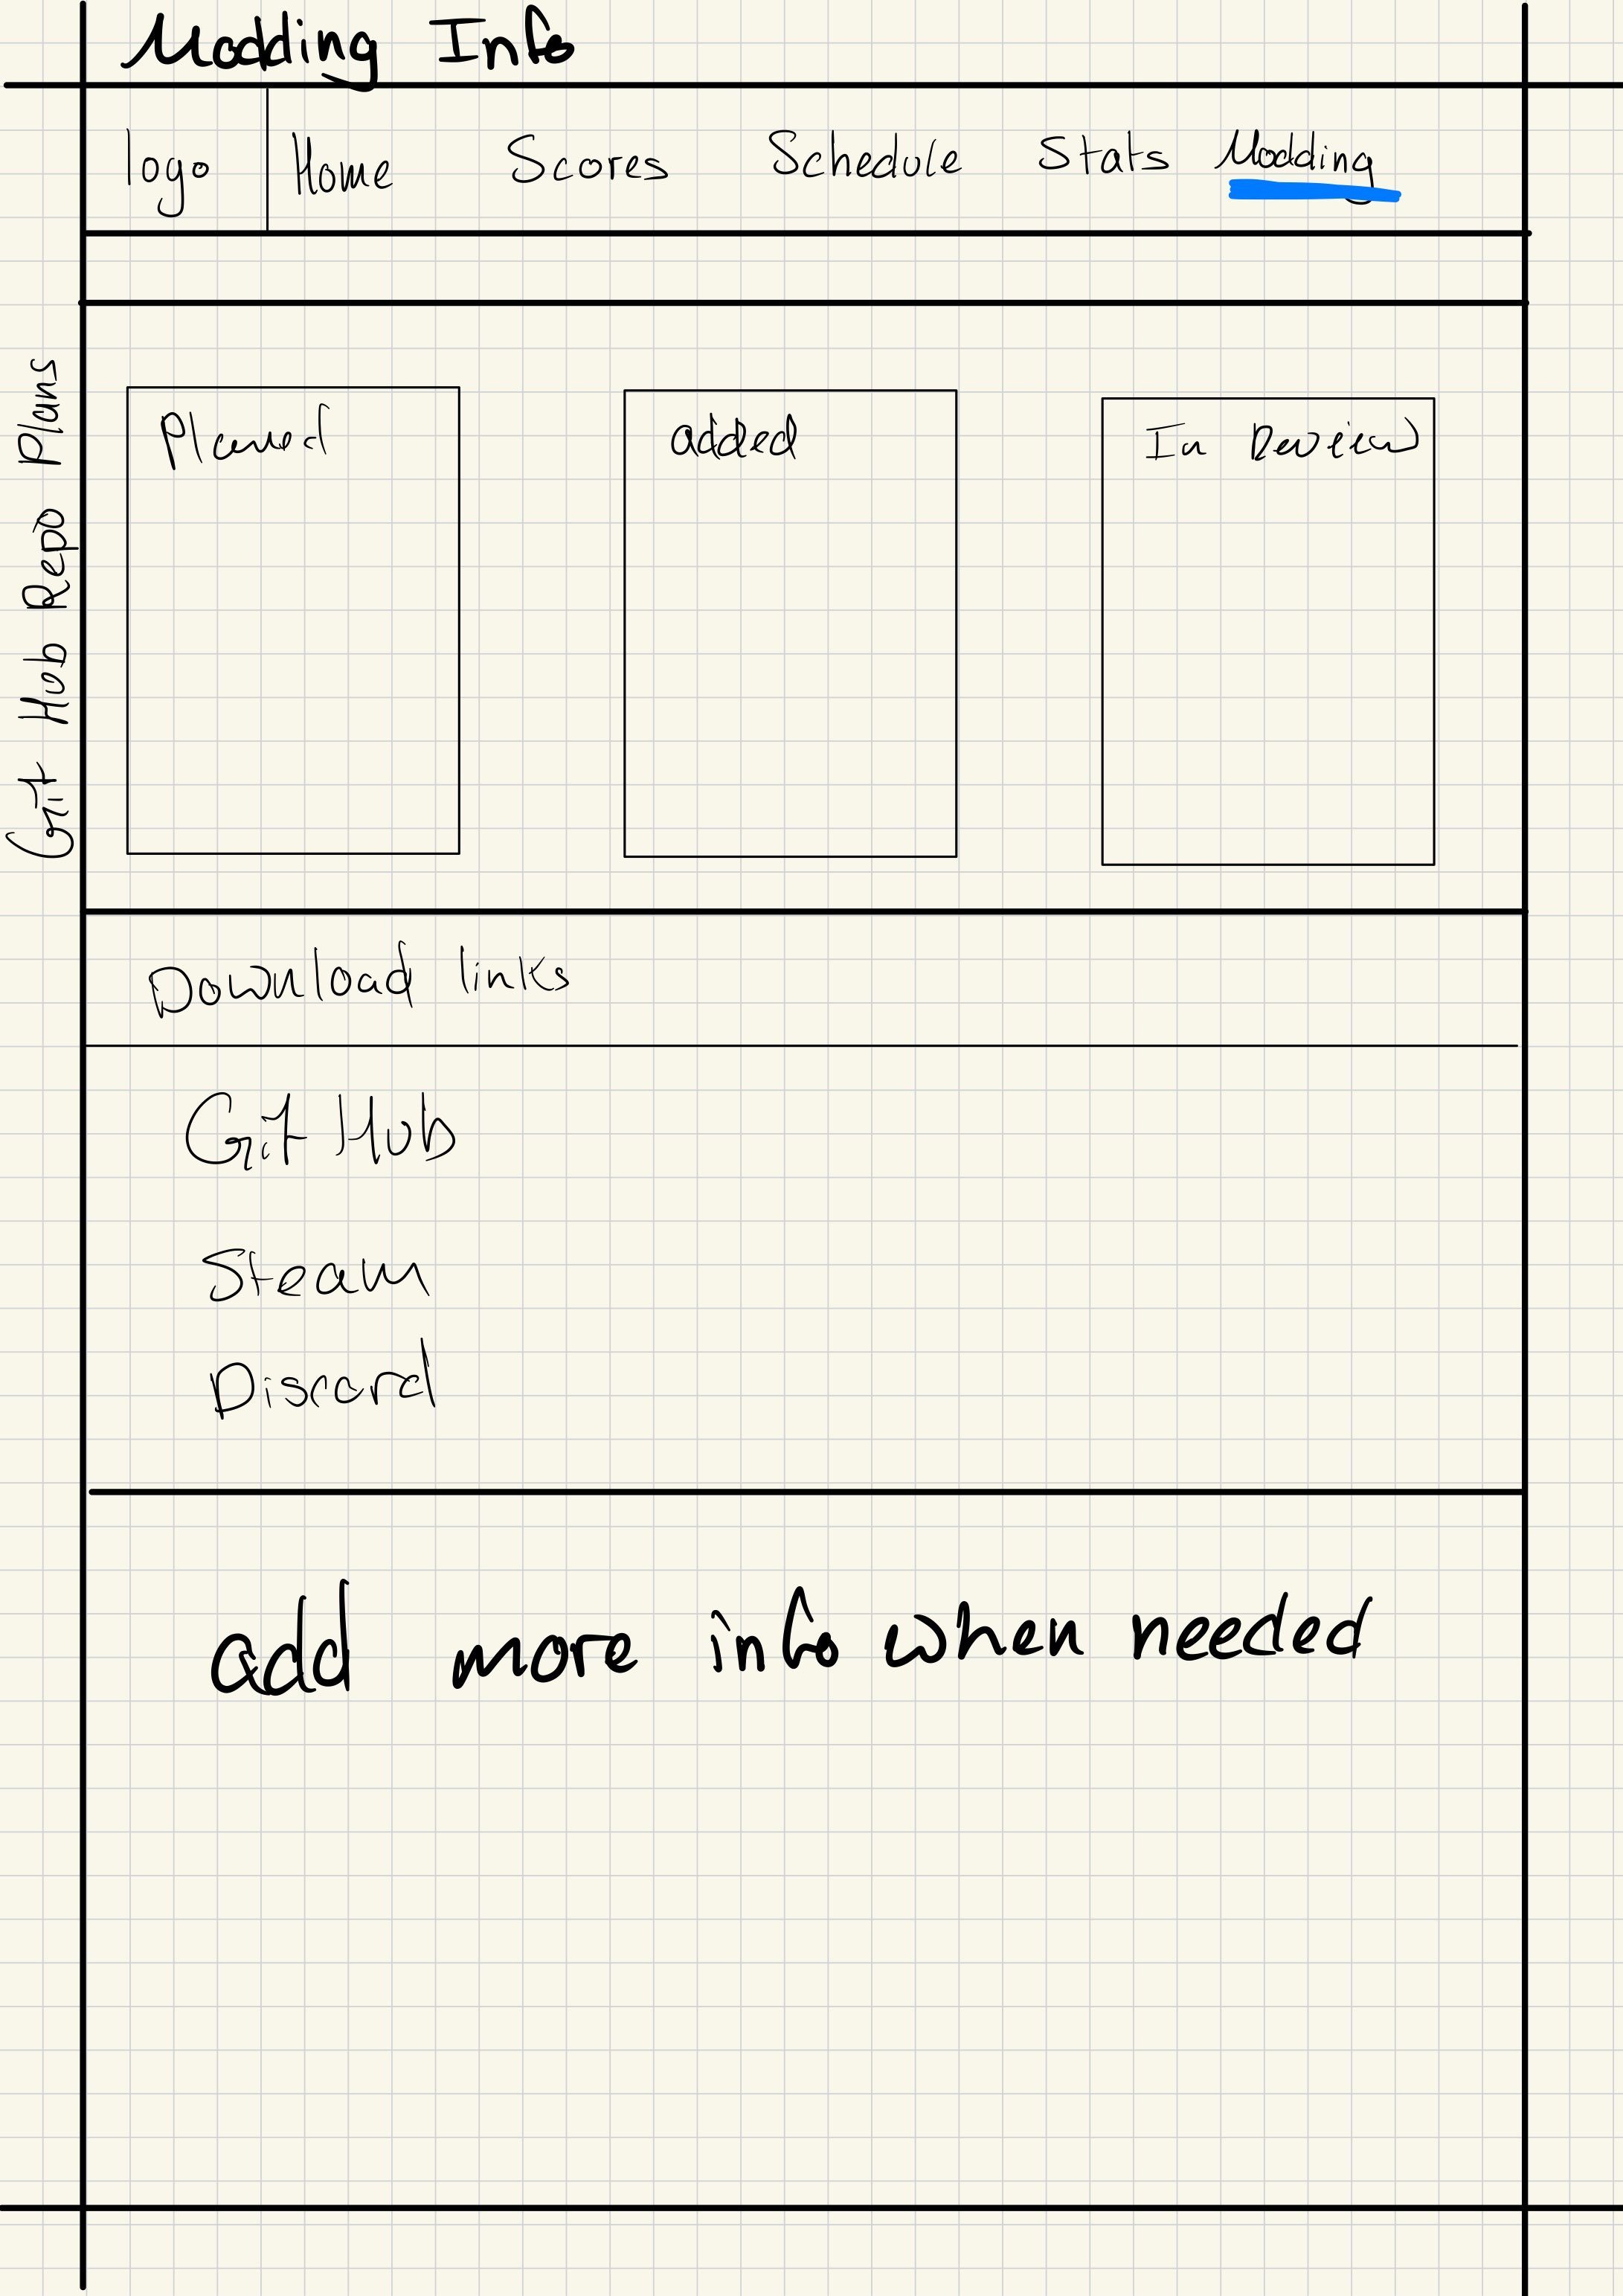 Modding Info
logo Home Scores Schedule Stats Modding
Git Hub Repo Plans
Planed added In Review
Download links
Git Hub
Steam
Discord
add more info when needed